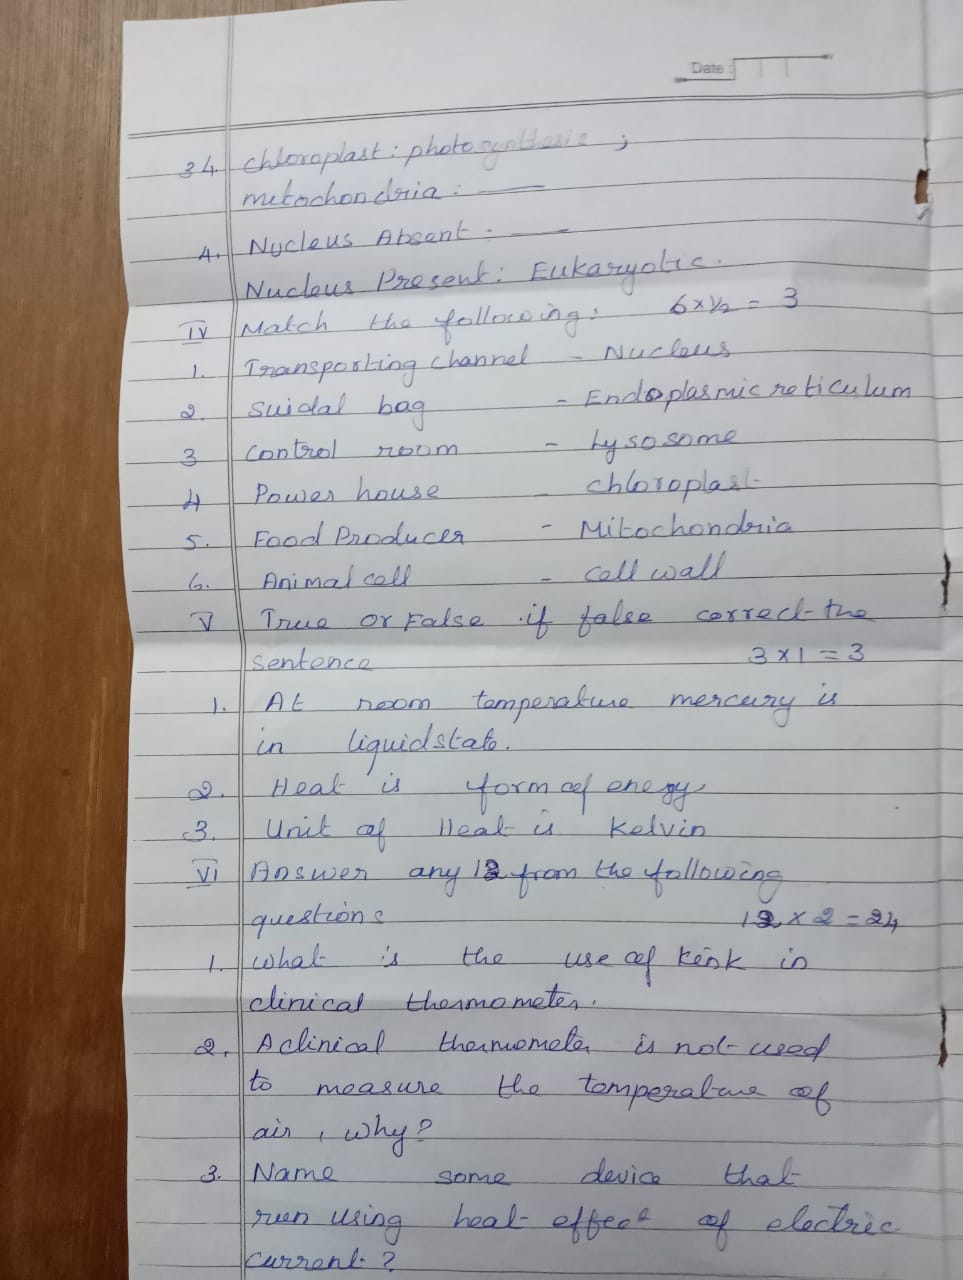 Date :
34. Chloroplast : photosynthesis ;
metochondria : ——
4. Nucleus Absent : ——
Nucleus Present : Eukaryotic.
IV Match the following : 6 x ½ = 3
1. Transporting channel - Nucleus
2. Suidal bag - Endoplasmic reticulum
3 Control room - Lysosome
4 Power house - chloroplast
5. Food Producer - Mitochondria
6. Animal cell - cell wall
V True or False if false correct the
sentence 3 x 1 = 3
1. At room temperature mercury is
in liquid state.
2. Heat is form of energy
3. Unit of Heat is Kelvin
VI Answer any 12 from the following
questions 12 x 2 = 24
1. What is the use of kink in
clinical thermometer.
2. A clinical thermometer is not used
to measure the temperature of
air , why ?
3. Name some device that
run using heat effect of electric
current ?